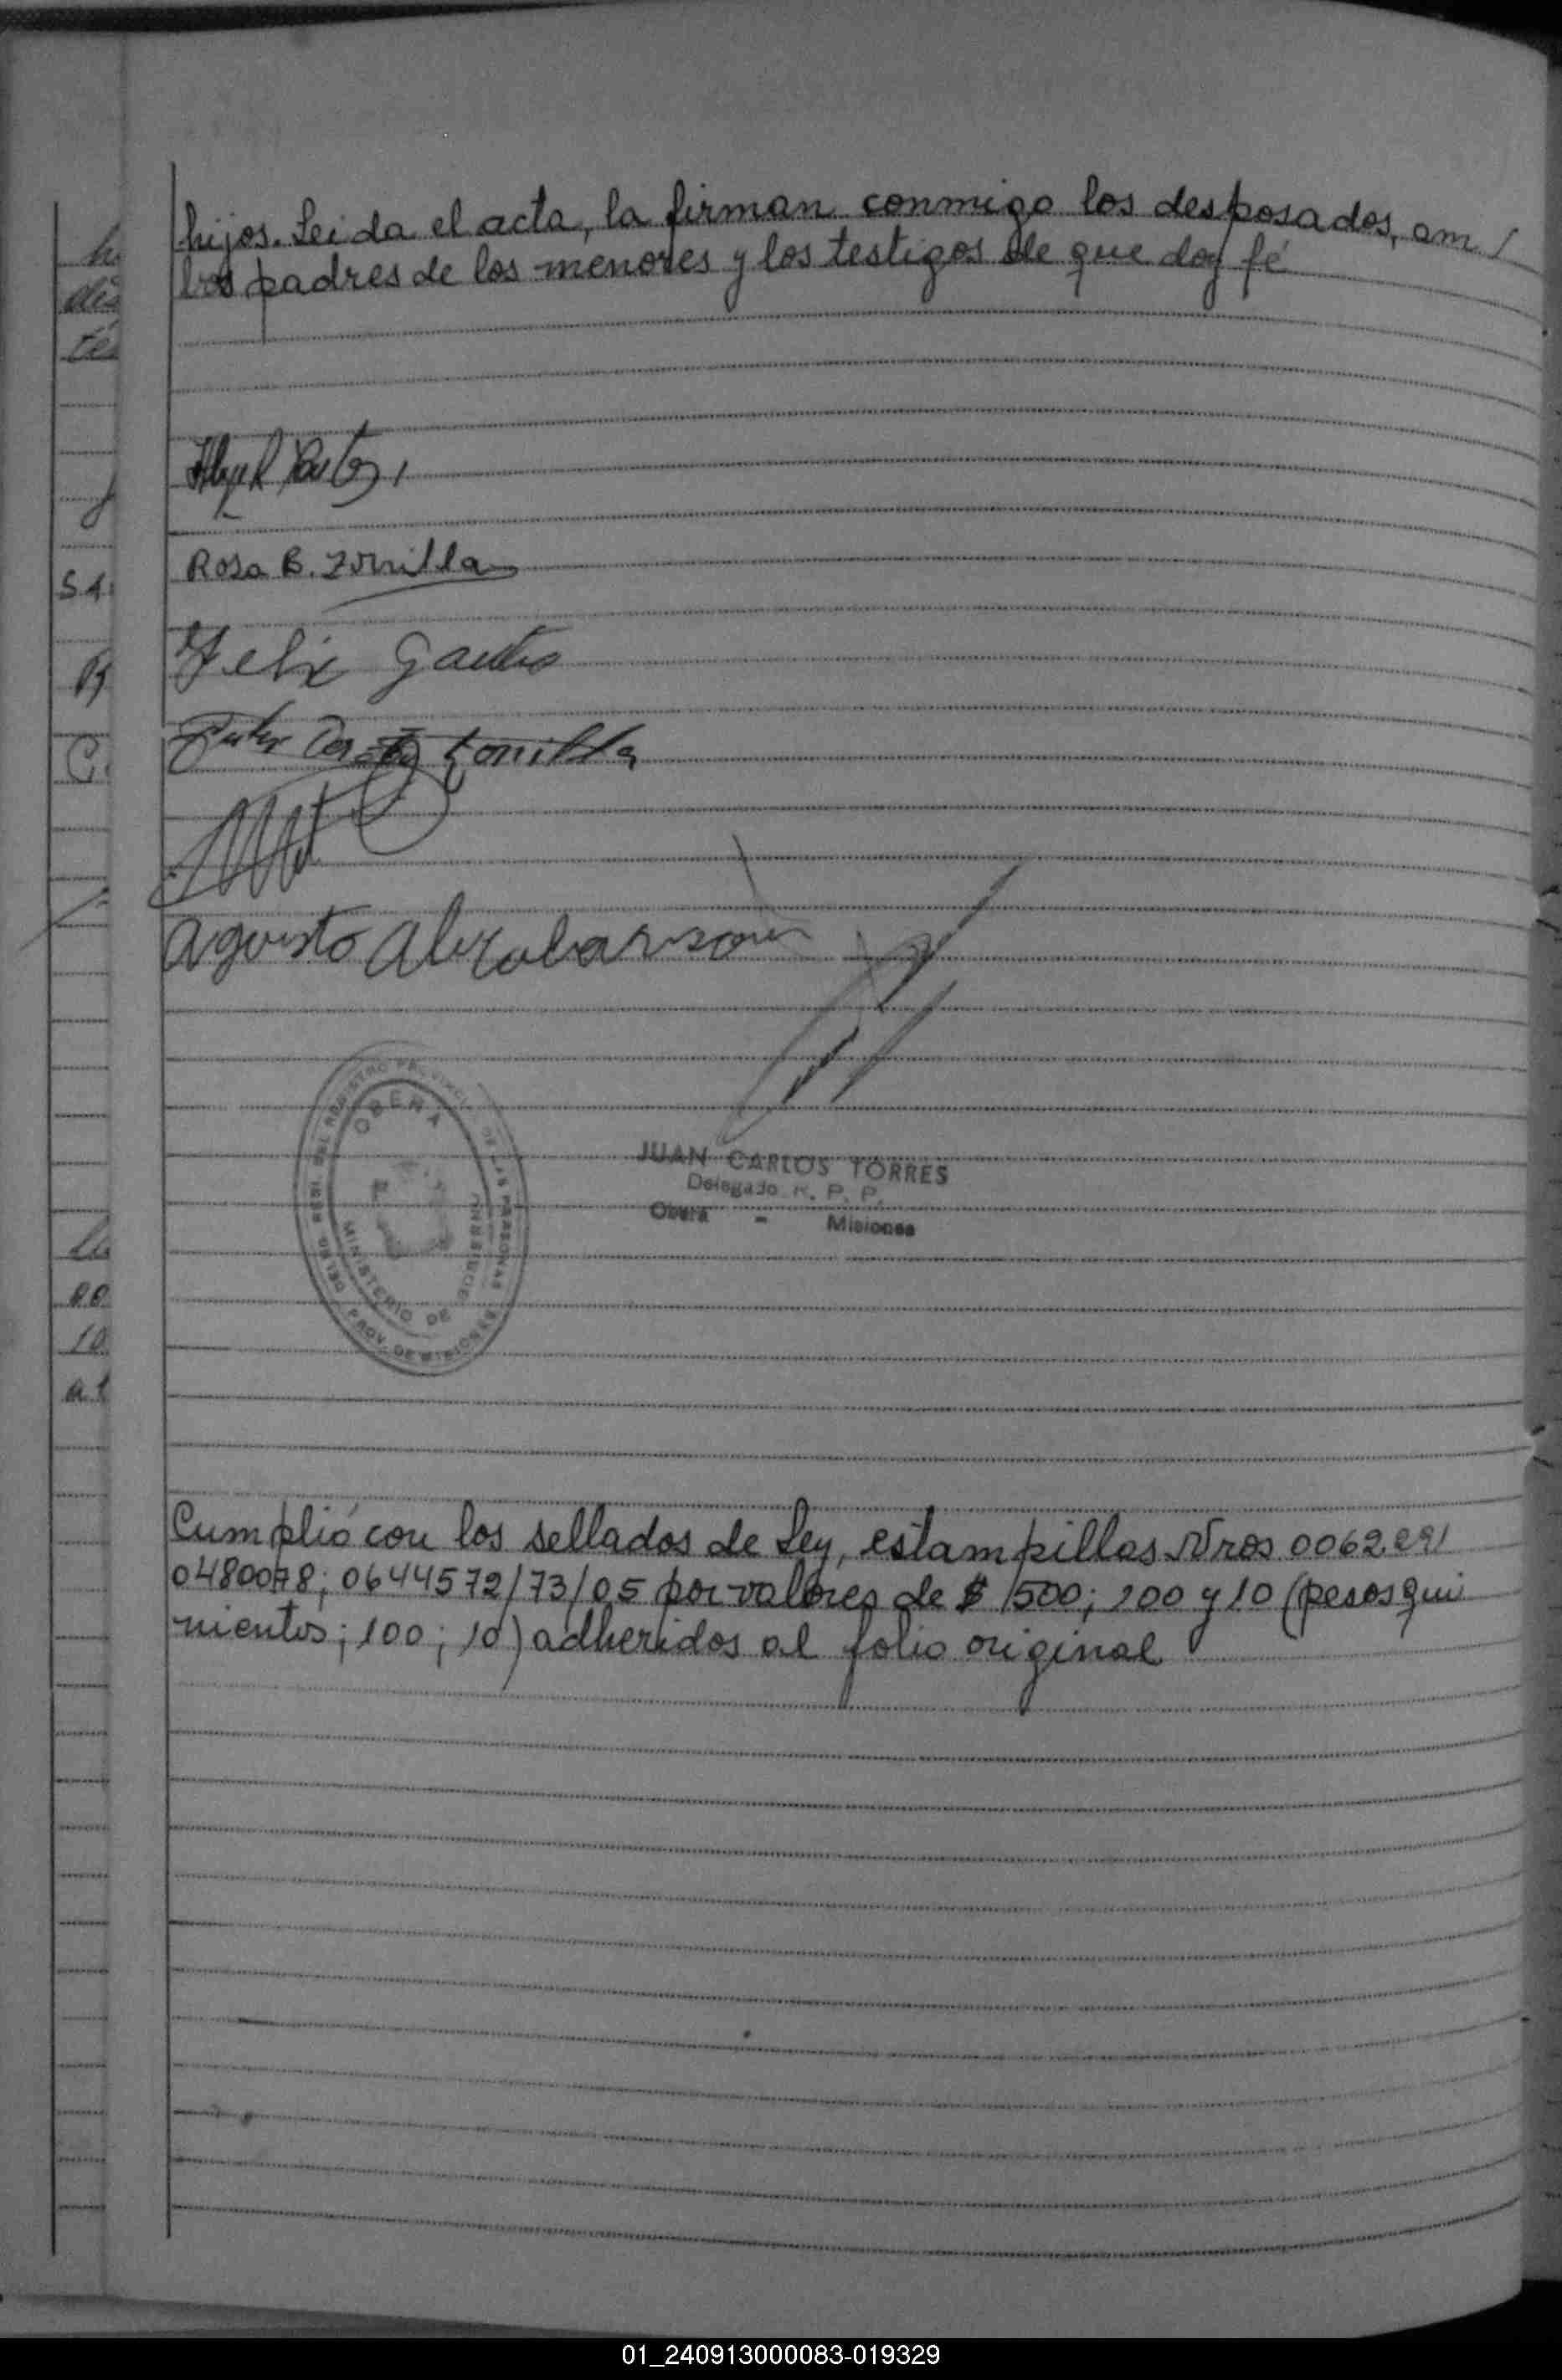 hijos. Leida el acta, la firman conmigo los desposados, am /
bos padres de los menores y los testigos de que doy fé
Rosa B. Zorrilla
Felix
Zorrilla
Agusto
OBERA
MINISTERIO DE
PROV. DE MISIONES
JUAN CARLOS TORRES
Delegado R. P. P.
Oberá - Misiones
Cumplió con los sellados de Ley, estampillas Nros 0062291
0480078; 0644572/73/05 por valores de $ 500; 100 y 10 (pesos qui
nientos; 100; 10) adheridos al folio original
01_240913000083-019329